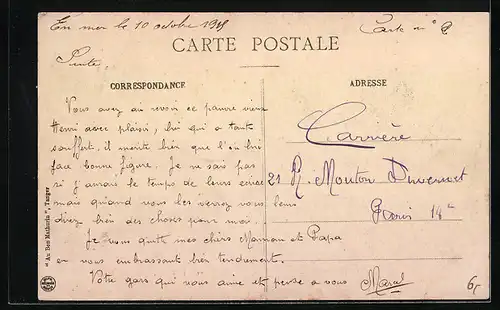 En mer le 10 octobre 1918
Carte n° 8
CARTE POSTALE
Suite.
CORRESPONDANCE
ADRESSE
Vous avez du revoir ce pauvre vieux
Henri avec plaisir, lui qui a tant
souffert, il mérite bien que l'on lui
face bonne figure. Je ne sais pas
si j'aurais le temps de leurs écrire
mais quand vous les verrez vous leurs
direz bien des choses pour moi.
Je vous quitte mes chers Maman et Papa
en vous embrassant bien tendrement.
Votre gars qui vous aime et pense a vous
Marcel
Carrière
21 R. Mouton Duvernet
Paris 14e
"Au Bon Mathurin", Tanger
6,